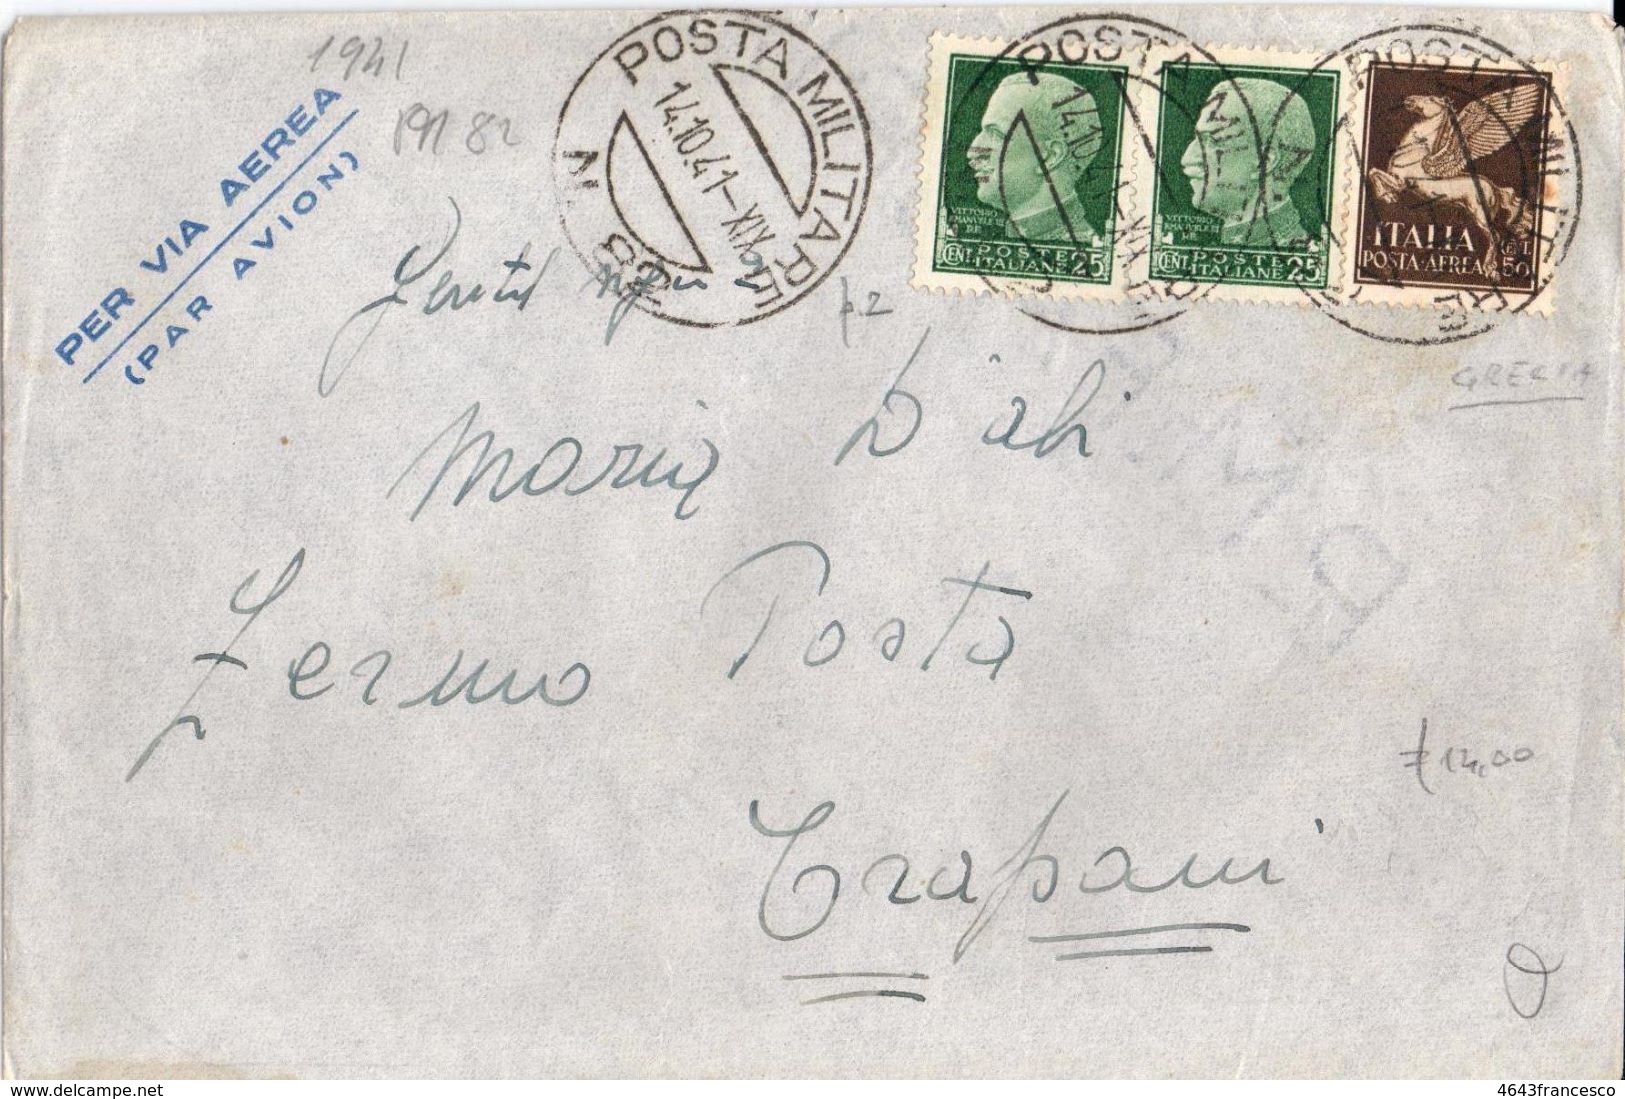 1941
PM 82
PER VIA AEREA
(PAR AVION)
POSTA MILITARE
14.10.41-XIX
N. 82
POSTA MILITARE
14.10.41-XIX
POSTA MILITARE
VITTORIO
EMANUELE III
RE
CENT POSTE 25
ITALIANE
VITTORIO
EMANUELE III
RE
CENT POSTE 25
ITALIANE
ITALIA
POSTA-AEREA
CENT
50
GRECIA
Maria D'Alì
Fermo Posta
14,00
Trapani
delcampe.net
4643francesco